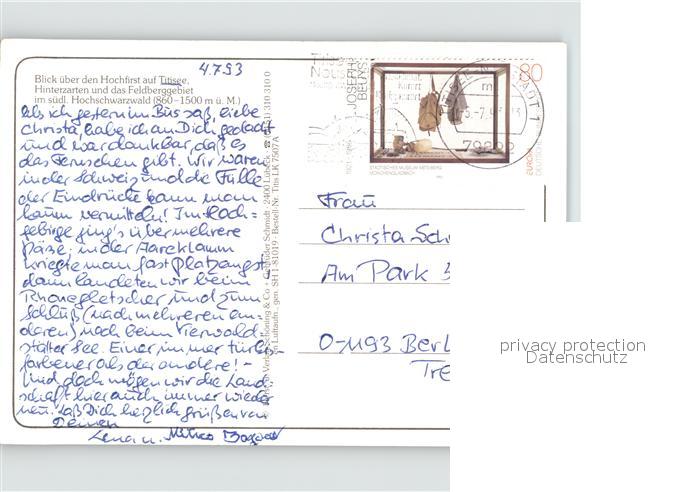 4.7.93
Blick über den Hochfirst auf Titisee,
Hinterzarten und das Feldberggebiet
im südl. Hochschwarzwald (860–1500 m ü. M.)
Als ich gestern im Bus saß, liebe
Christa, habe ich an Dich gedacht
und war dankbar, daß es
das Fernsehen gibt. Wir waren
in der Schweiz und die Fülle
der Eindrücke kann man
kaum vermitteln! Im Hoch-
gebirge ging's über mehrere
Pässe, in der Aareklamm
kriegte man fast Platzangst,
dann landeten wir beim
Rhonegletscher und zum
Schluß (nach mehreren an-
deren) noch beim Vierwald-
stätter See. Einer immer türkis-
farbener als der andere! -
Und doch mögen wir die Land-
schaft hier auch immer wieder
neu. Laß Dich herzlich grüßen von
Deinen
Lena u.
Schöning & Co + Gebrüder Schmidt · 2400 Lübeck
SH 1-81019 · Bestell-Nr. Tits LK 7507A
JOSEPH
BEUYS
80
STÄDTISCHES MUSEUM ABTEIBERG
MÖNCHENGLADBACH
EUROPA
DEUTSCHE
Frau
Christa Sch
Am Park
O-1193 Berl
Tre
privacy protection
Datenschutz